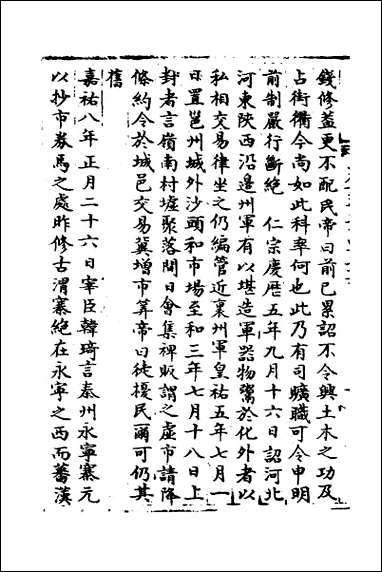 錢修蓋更不配民帝曰前已累詔不令興土木之功及
占街衢今尚如此科率何也此乃有司曠職可令申明
前制嚴行斷絶　仁宗慶厯五年九月十六日詔河北
河東陝西沿邊州軍有以堪造軍器物鬻於化外者以
私相交易律坐之仍編管近襄州軍皇祐五年七月一
日置邕州城外沙頭和市場至和三年七月十八日上
封者言嶺南村墟聚落間日會集裨販謂之虛市請降
條約令於城邑交易冀增市算帝曰徒擾民爾可仍其
舊
嘉祐八年正月二十六日宰臣韓琦言秦州永寧寨元
以抄市券馬之處昨修古渭寨絶在永寧之西而蕃漢